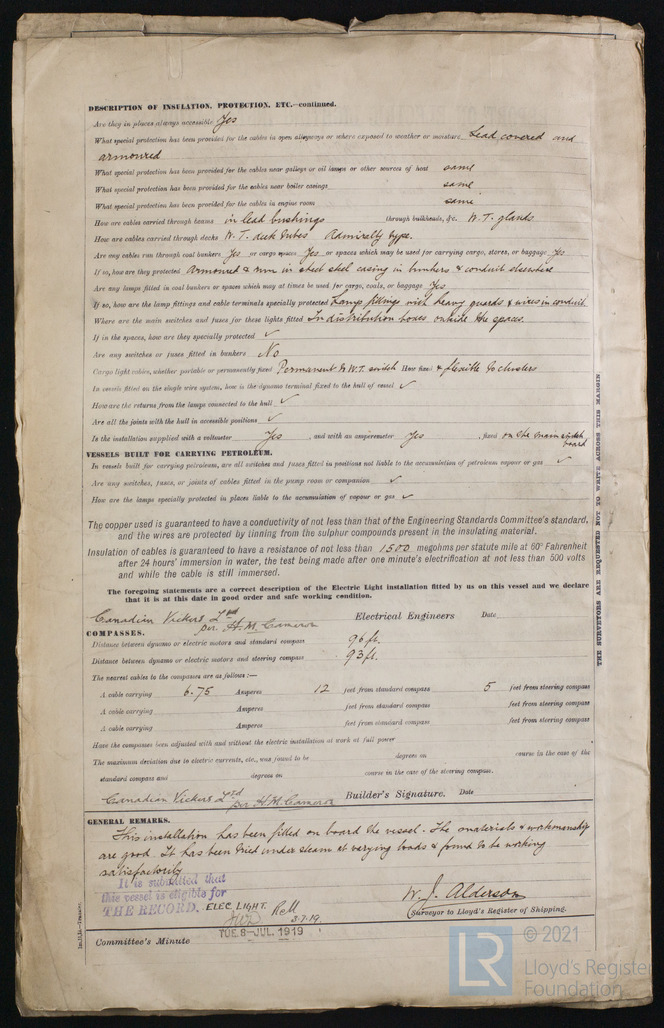 DESCRIPTION OF INSULATION, PROTECTION, ETC.—continued.
Are they in places always accessible Yes
What special protection has been provided for the cables in open alleyways or where exposed to weather or moisture Lead covered and
armoured
What special protection has been provided for the cables near galleys or oil lamps or other sources of heat same
What special protection has been provided for the cables near boiler casings same
What special protection has been provided for the cables in engine room same
How are cables carried through beams in lead bushings through bulkheads, &c. W.T. glands
How are cables carried through decks W.T. deck tubes Admiralty type.
Are any cables run through coal bunkers Yes or cargo spaces Yes or spaces which may be used for carrying cargo, stores, or baggage Yes
If so, how are they protected Armoured & run in steel casing in bunkers & conduit elsewhere
Are any lamps fitted in coal bunkers or spaces which may at times be used for cargo, coals, or baggage Yes
If so, how are the lamp fittings and cable terminals specially protected Lamp fittings with heavy guards & wires in conduit
Where are the main switches and fuses for these lights fitted In distribution boxes outside the spaces.
If in the spaces, how are they specially protected ✓
Are any switches or fuses fitted in bunkers No
Cargo light cables, whether portable or permanently fixed Permanent to W.T. switch How fixed & flexible to clusters
In vessels fitted on the single wire system, how is the dynamo terminal fixed to the hull of vessel ✓
How are the returns from the lamps connected to the hull ✓
Are all the joints with the hull in accessible positions ✓
Is the installation supplied with a voltmeter Yes , and with an amperemeter Yes , fixed on the main switch
board
VESSELS BUILT FOR CARRYING PETROLEUM.
In vessels built for carrying petroleum, are all switches and fuses fitted in positions not liable to the accumulation of petroleum vapour or gas ✓
Are any switches, fuses, or joints of cables fitted in the pump room or companion ✓
How are the lamps specially protected in places liable to the accumulation of vapour or gas ✓
The copper used is guaranteed to have a conductivity of not less than that of the Engineering Standards Committee's standard,
and the wires are protected by tinning from the sulphur compounds present in the insulating material.
Insulation of cables is guaranteed to have a resistance of not less than 1500 megohms per statute mile at 60° Fahrenheit
after 24 hours' immersion in water, the test being made after one minute's electrification at not less than 500 volts
and while the cable is still immersed.
The foregoing statements are a correct description of the Electric Light installation fitted by us on this vessel and we declare
that it is at this date in good order and safe working condition.
Canadian Vickers Ltd
per. H.M. Cameron Electrical Engineers Date
COMPASSES.
Distance between dynamo or electric motors and standard compass 96 ft.
Distance between dynamo or electric motors and steering compass 93 ft.
The nearest cables to the compasses are as follows:—
A cable carrying 6.75 Amperes 12 feet from standard compass 5 feet from steering compass
A cable carrying Amperes feet from standard compass feet from steering compass
A cable carrying Amperes feet from standard compass feet from steering compass
Have the compasses been adjusted with and without the electric installation at work at full power
The maximum deviation due to electric currents, etc., was found to be degrees on course in the case of the
standard compass and degrees on course in the case of the steering compass.
Canadian Vickers Ltd per H.M. Cameron Builder's Signature. Date
GENERAL REMARKS.
This installation has been fitted on board the vessel. The materials & workmanship
are good. It has been tried under steam at varying loads & found to be working
satisfactorily
It is submitted that
this vessel is eligible for
THE RECORD. ELEC. LIGHT.
3.7.19.
W. J. Alderson
Surveyor to Lloyd's Register of Shipping.
TUE 8-JUL 1919
Committee's Minute
THE SURVEYORS ARE REQUESTED NOT TO WRITE ACROSS THIS MARGIN
LR © 2021
Lloyd's Register
Foundation